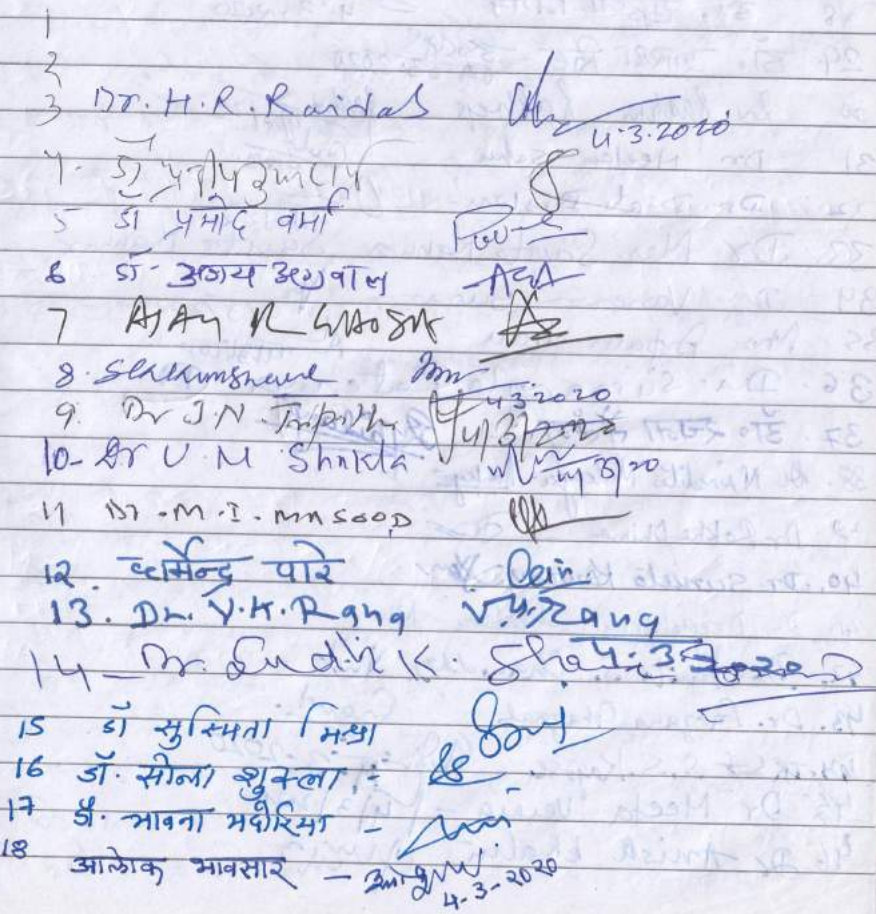 1
2
3 Dr. H. R. Raidas 4.3.2020
4. डॉ
5 डॉ प्रमोद वर्मा
6 डॉ- अजय अग्रवाल
7 AJAY R GHOSH
8.  4.3.2020
9. Dr J.N. Tripathi 4/3/2020
10- Dr U. M Shukla 4/3/20
11 Dr. M. I. MASOOD
12. धर्मेन्द्र पारे
13. Dr. V. K. Rang V.K. Rang
4.3.2020
14- Dr. Sudhir K.
15 डॉ सुस्मिता मिश्रा
16 डॉ. सोना शुक्ला :-
17 डॉ. भावना भदौरिया -
18 आलोक भावसार -
4-3-2020